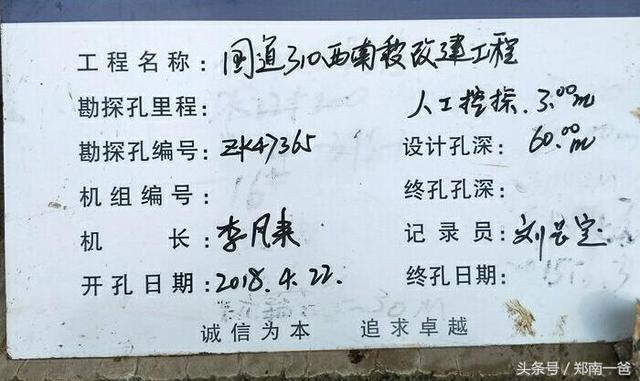 工程名称：国道310西南段改建工程
勘探孔里程： 人工挖探.3.00m
勘探孔编号：ZK47365 设计孔深：60.00m
机组编号： 终孔孔深：
机 长：李凡来 记录员：刘
开孔日期：2018.4.22. 终孔日期：
诚信为本 追求卓越
头条号／郑南一爸